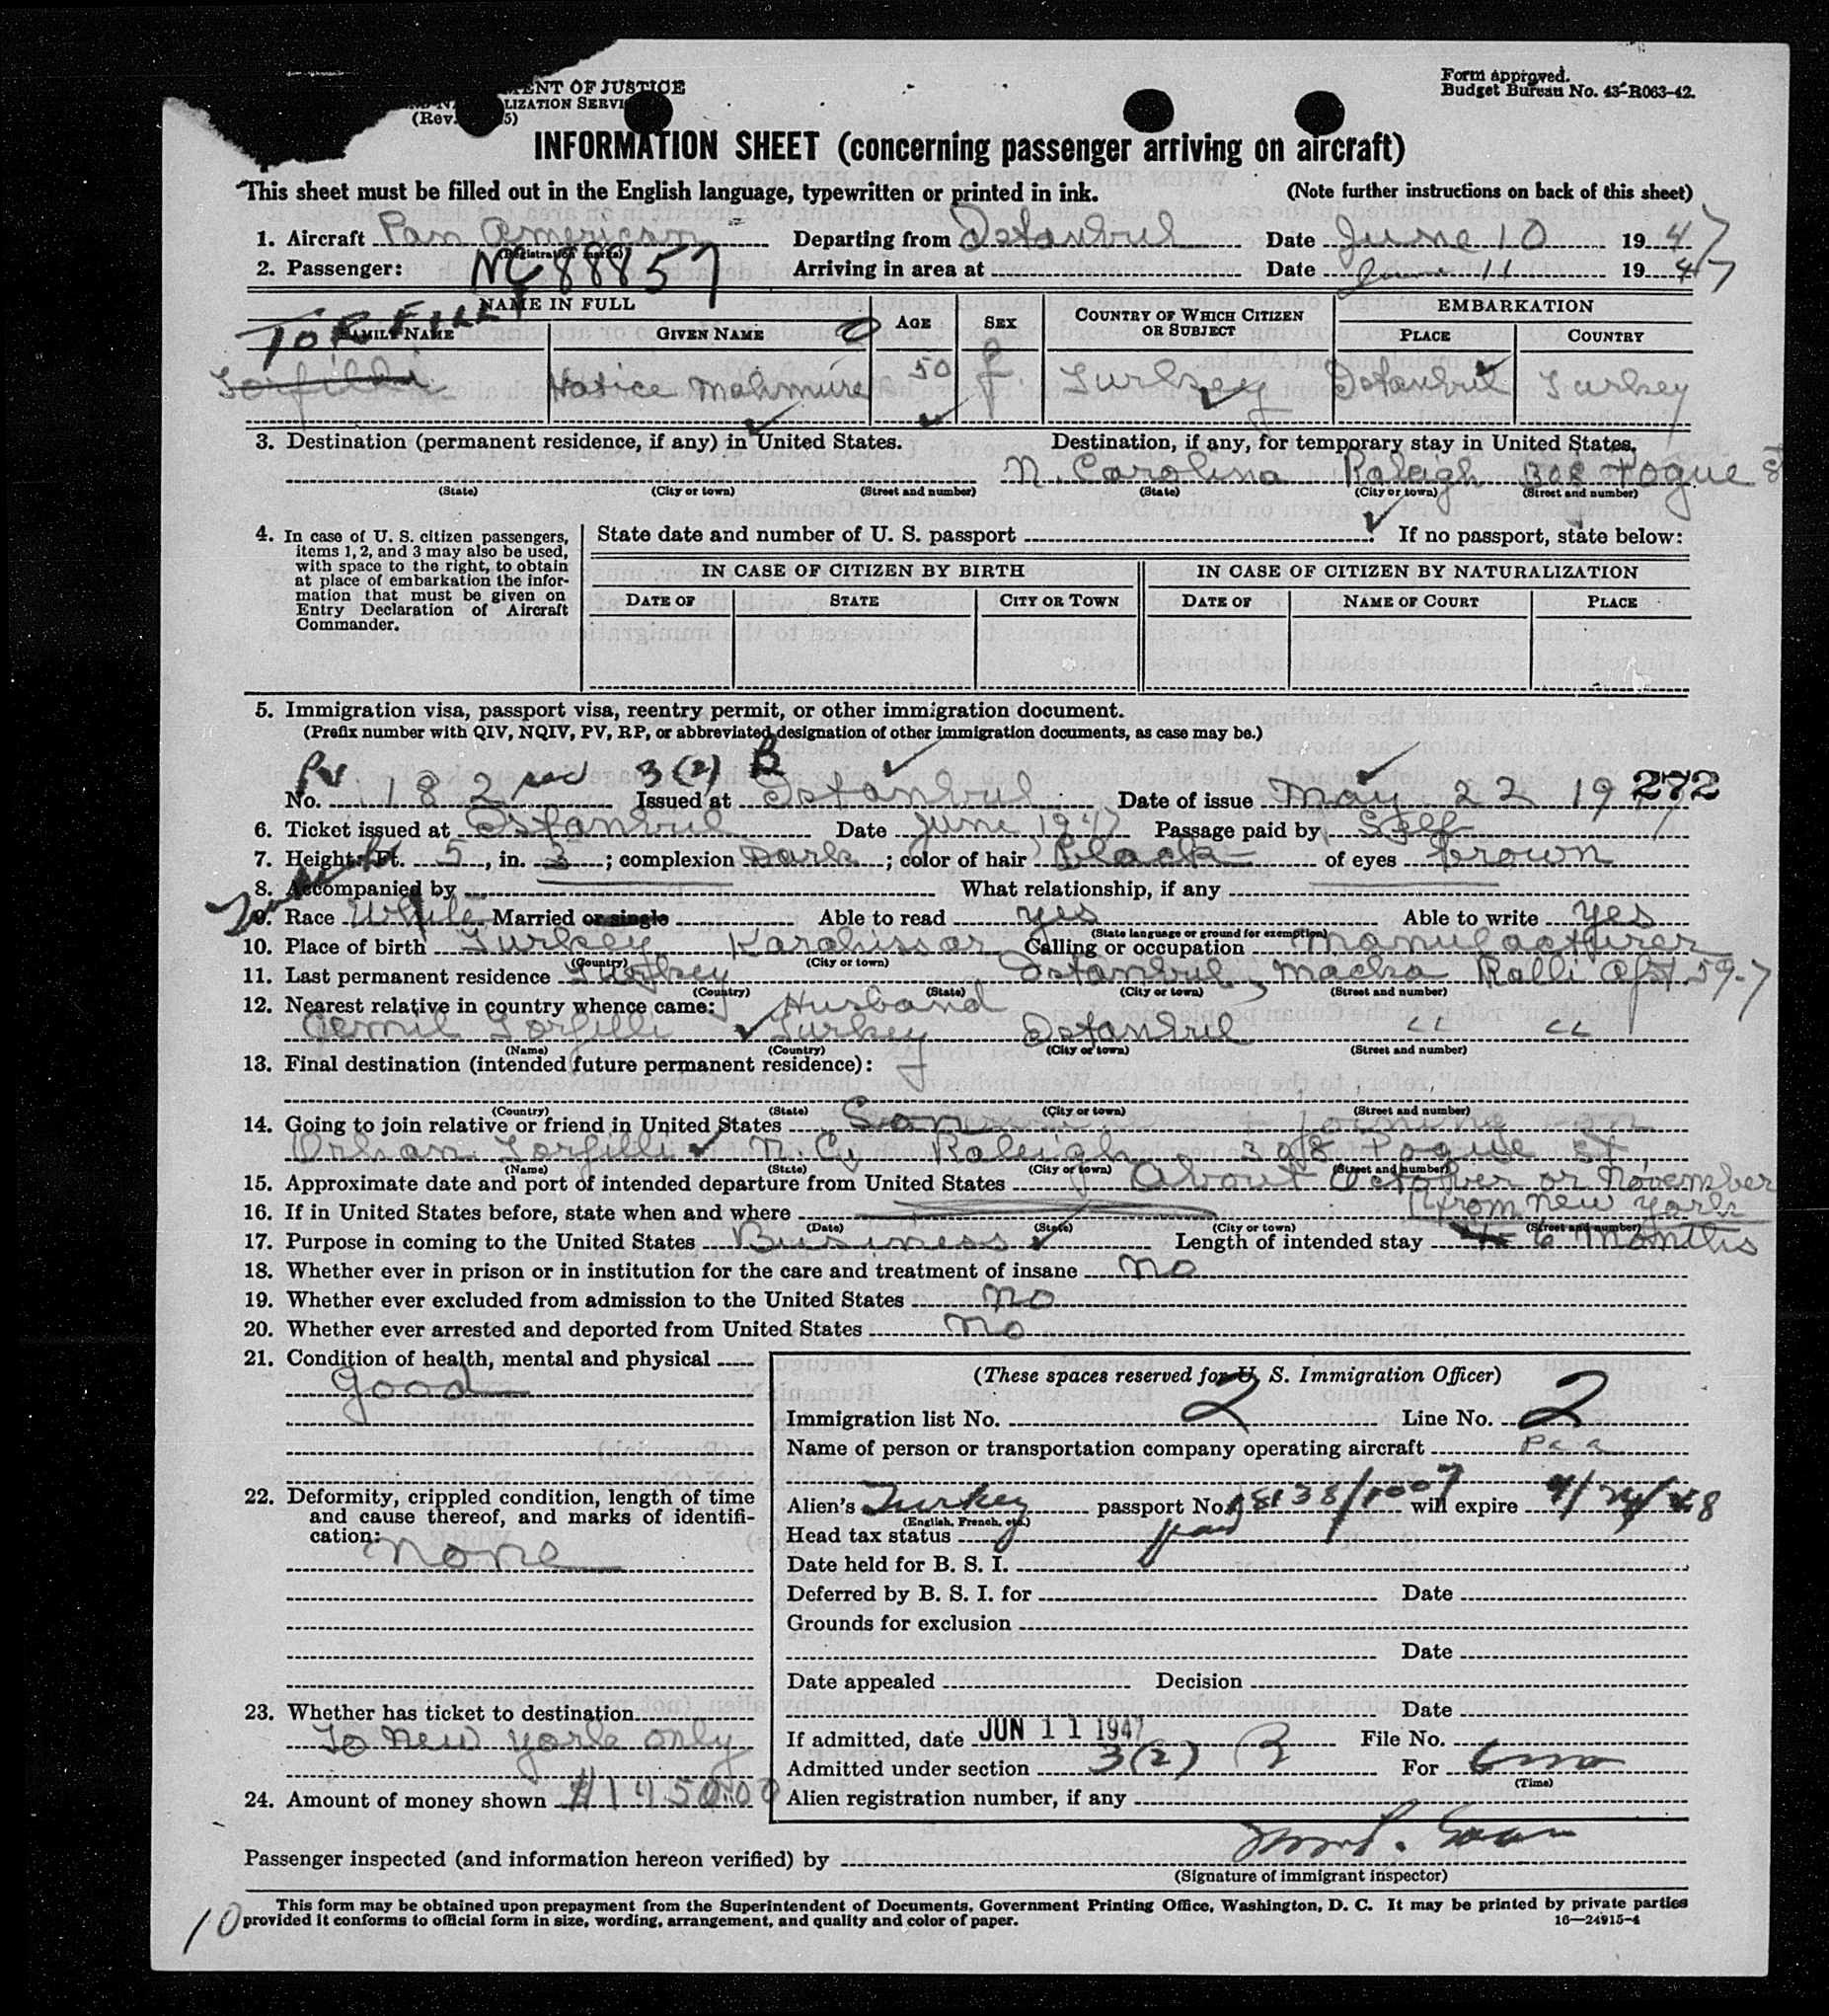 MENT OF JUSTICE
LIZATION SERVI
(Rev. 5)
Form approved.
Budget Bureau No. 43-R063-42.
INFORMATION SHEET (concerning passenger arriving on aircraft)
This sheet must be filled out in the English language, typewritten or printed in ink. (Note further instructions on back of this sheet)
1. Aircraft Pan American Departing from Istanbul Date June 10 1947
(Registration marks)
2. Passenger: NC 88857 Arriving in area at Date June 11 1947
NAME IN FULL AGE SEX COUNTRY OF WHICH CITIZEN OR SUBJECT EMBARKATION
FAMILY NAME GIVEN NAME PLACE COUNTRY
TORFILLI
Torfilli Hatice Mahmure 50 f. Turkey Istanbul Turkey
3. Destination (permanent residence, if any) in United States. Destination, if any, for temporary stay in United States.
N. Carolina Raleigh 308 Pogue St
(State) (City or town) (Street and number) (State) (City or town) (Street and number)
4. In case of U. S. citizen passengers, items 1, 2, and 3 may also be used, with space to the right, to obtain at place of embarkation the information that must be given on Entry Declaration of Aircraft Commander.
State date and number of U. S. passport If no passport, state below:
IN CASE OF CITIZEN BY BIRTH IN CASE OF CITIZEN BY NATURALIZATION
DATE OF STATE CITY OR TOWN DATE OF NAME OF COURT PLACE
5. Immigration visa, passport visa, reentry permit, or other immigration document.
(Prefix number with QIV, NQIV, PV, RP, or abbreviated designation of other immigration documents, as case may be.)
PV 3(2) B
No. 182 Issued at Istanbul Date of issue May 22 19 272
6. Ticket issued at Istanbul Date June 1947 Passage paid by Self
7. Height: Ft. 5, in. 3; complexion Dark; color of hair Black of eyes brown
8. Accompanied by What relationship, if any
9. Race White Married or single Able to read yes Able to write yes
(State language or ground for exemption)
10. Place of birth Turkey Karahissar Calling or occupation Manufacturer
(Country) (City or town)
11. Last permanent residence Turkey Istanbul, Macka Ralli Apt 59-7
(Country) (State) (City or town) (Street and number)
12. Nearest relative in country whence came: Husband
Cemil Torfilli Turkey Istanbul " "
(Name) (Country) (City or town) (Street and number)
13. Final destination (intended future permanent residence):
(Country) (State) (City or town) (Street and number)
14. Going to join relative or friend in United States Son
Orhan Torfilli N.C. Raleigh 308 Pogue St.
(Name) (State) (City or town) (Street and number)
15. Approximate date and port of intended departure from United States About October or November
from New York
16. If in United States before, state when and where
(Date) (State) (City or town) (Street and number)
17. Purpose in coming to the United States Business Length of intended stay 6 months
18. Whether ever in prison or in institution for the care and treatment of insane no
19. Whether ever excluded from admission to the United States no
20. Whether ever arrested and deported from United States no
21. Condition of health, mental and physical
good
22. Deformity, crippled condition, length of time and cause thereof, and marks of identification:
none
23. Whether has ticket to destination
To New York only
24. Amount of money shown $1450.00
(These spaces reserved for U. S. Immigration Officer)
Immigration list No. 2 Line No. 2
Name of person or transportation company operating aircraft PAA
Alien's Turkey passport No. 18138/1007 will expire
(English, French, etc.)
Head tax status paid
Date held for B. S. I.
Deferred by B. S. I. for Date
Grounds for exclusion
Date
Date appealed Decision
Date
If admitted, date JUN 11 1947 File No.
Admitted under section 3(2) B For 6 mo
(Time)
Alien registration number, if any
Passenger inspected (and information hereon verified) by
(Signature of immigrant inspector)
This form may be obtained upon prepayment from the Superintendent of Documents, Government Printing Office, Washington, D. C. It may be printed by private parties
provided it conforms to official form in size, wording, arrangement, and quality and color of paper. 16—24915-4
10